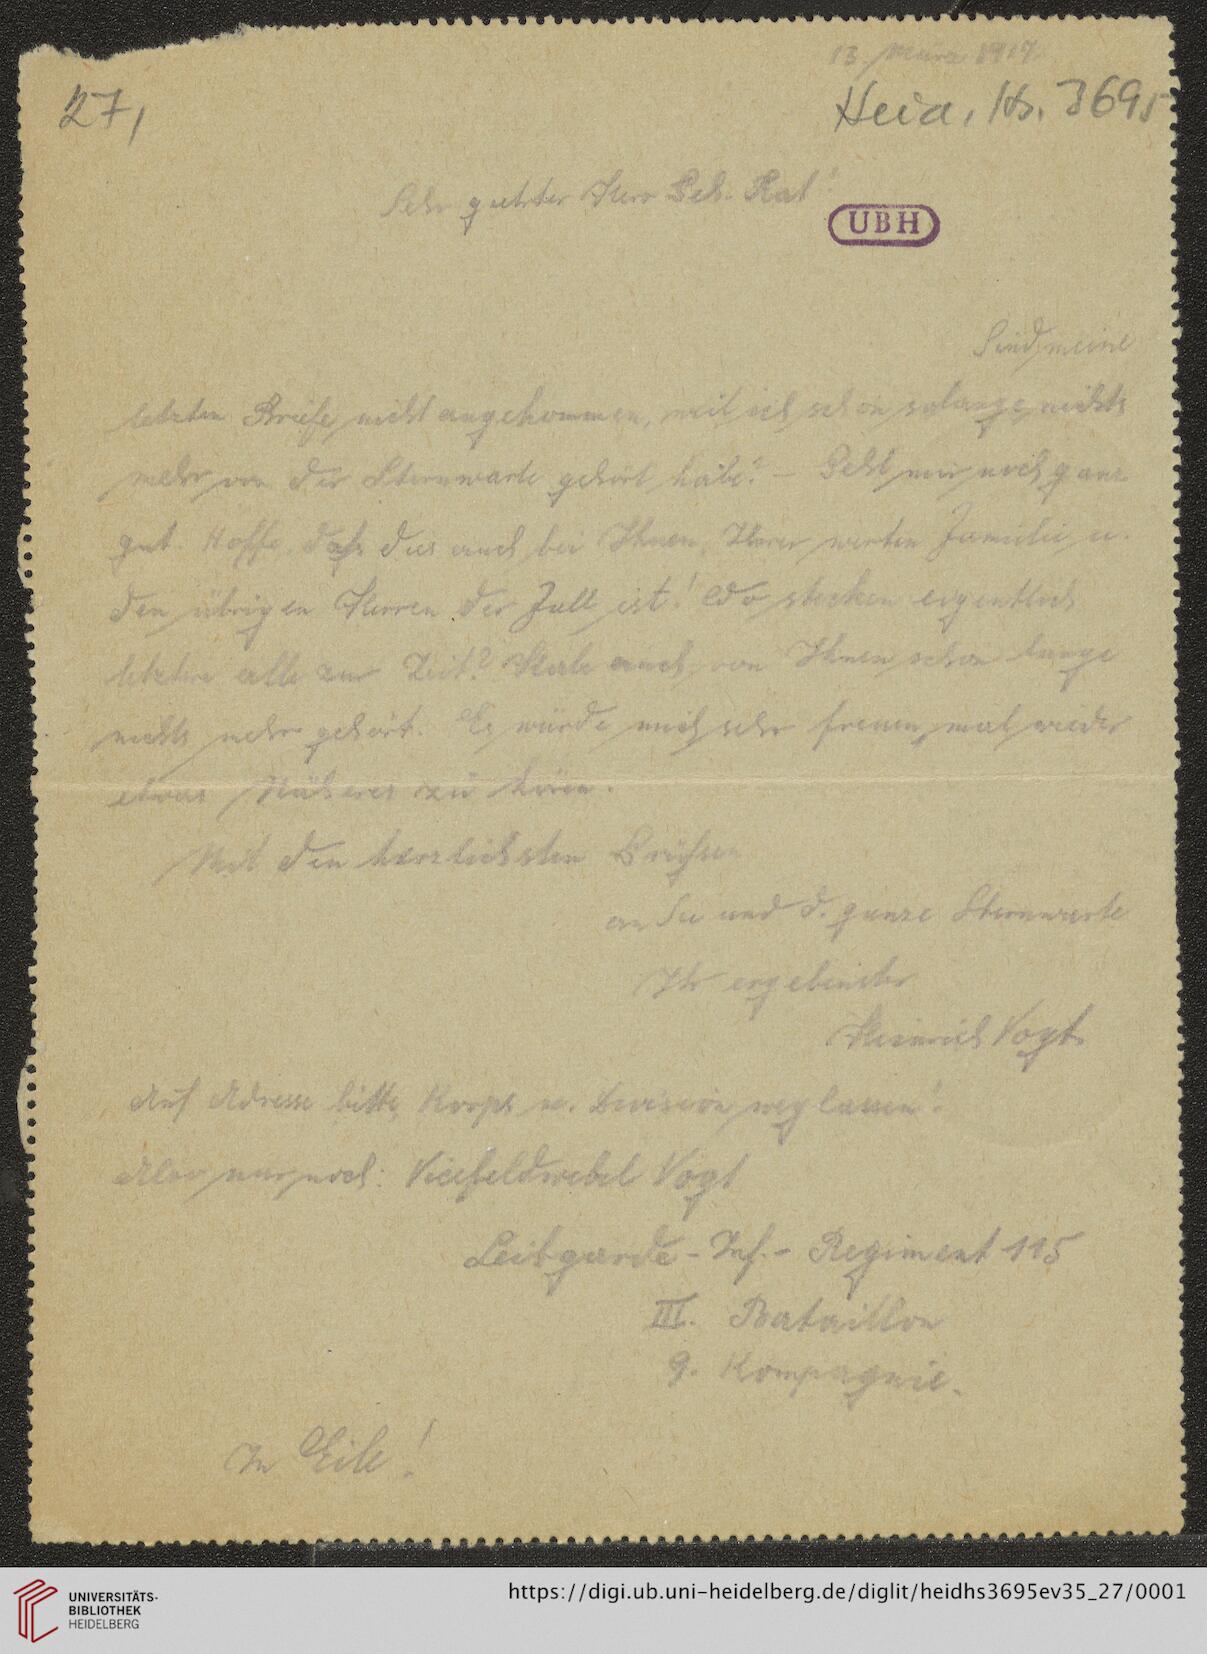 13. März 1917.
27,
Heid. Hs. 3695
Sehr geehrter Herr Geh. Rat!
UBH
Sind meine
letzten Briefe nicht angekommen, weil ich schon solange nichts
mehr von der Sternwarte gehört habe? – Geht mir noch ganz
gut. Hoffe, dass dies auch bei Ihnen, Ihrer werten Familie u.
den übrigen Herren der Fall ist! Wo stecken eigentlich
letztere alle zur Zeit? Habe auch von Ihnen schon lange
nichts mehr gehört. Es würde mich sehr freuen, mal wieder
etwas Näheres zu hören.
Mit den herzlichsten Grüssen
an Sie und d. ganze Sternwarte
Ihr ergebenster
Heinrich Vogt
Auf Adresse bitte Korps u. Division weglassen!
Also nur noch: Vicefeldwebel Vogt
Leibgarde-Inf.-Regiment 115
III. Bataillon
9. Kompagnie.
In Eile!
UNIVERSITÄTS-
BIBLIOTHEK
HEIDELBERG
https://digi.ub.uni-heidelberg.de/diglit/heidhs3695ev35_27/0001